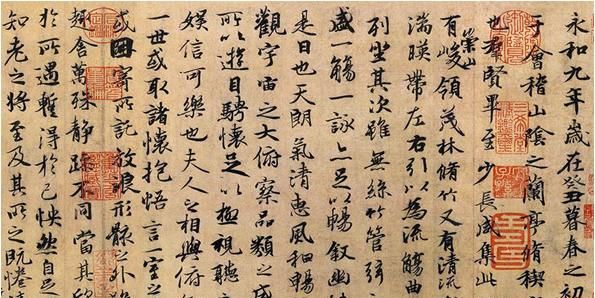 永和九年歲在癸丑暮春之初
于會稽山陰之蘭亭脩稧
也羣賢畢至少長咸集此
有崇山峻領茂林脩竹又有清流
湍暎帶左右引以為流觴曲
列坐其次雖無絲竹管弦
盛一觴一詠亦足以暢叙幽
是日也天朗氣清惠風和暢
觀宇宙之大俯察品類之盛
所以遊目騁懷足以極視聽
娛信可樂也夫人之相與俯
一世或取諸懷抱悟言一室之
或因寄所託放浪形骸之外
趣舍萬殊静躁不同當其欣
於所遇蹔得於己怏然自足
知老之將至及其所之既惓